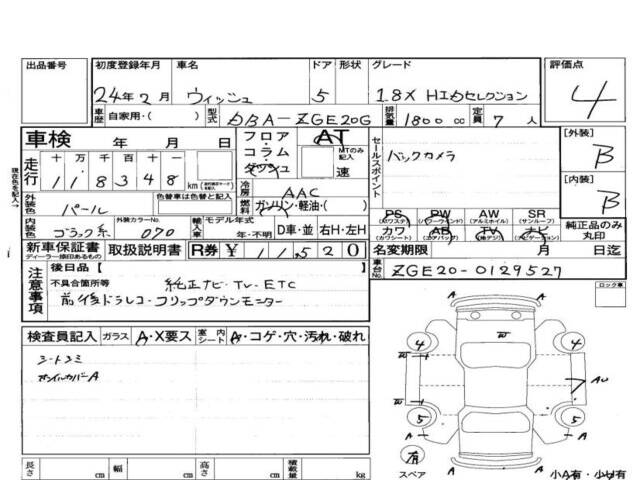 出品番号 初度登録年月 車名 ドア 形状 グレード 評価点
24年2月 ウィッシュ 5 1.8X HIDセレクション 4
車歴 自家用・( ) 型式 DBA-ZGE20G 排気量 1800cc 定員 7人
車検 年 月 日 フロア・コラム・ AT MTのみ記入 速 セールスポイント バックカメラ 【外装】 B
走行 十万千百十一 118348 km
現在色を記入→
外装色 パール 色替車は色替と記入 冷房 AAC 【内装】 B
燃料 ガソリン・軽油・( )
PS (パワステ) PW (パワーウィンドウ) AW (アルミホイル) SR (サンルーフ)
内装色 ブラック系 外装カラーNo. 070 輸入車 モデル年式 年・不明 D車・並 右H・左H カワ (カワシート) AB (エアバッグ) TV (地デジ) ナビ (ナビゲーション) 純正品のみ丸印
新車保証書 ディーラー捺印あるもの 取扱説明書 R券 ¥11,520 名変期限 月 日迄
注意事項 後日品【 】 車台No. ZGE20-0129527
不具合箇所等 純正ナビ・TV・ETC
前後ドラレコ・フリップダウンモニター
ロック車
検査員記入 ガラス A・X要ス 室内シート A・コゲ・穴・汚れ・破れ
シートシミ
A
4 4
W
W
7 AU
5 5
A A
有 スペア A A
長さ cm 幅 cm 高さ cm 積載量 kg
小A有・小U有